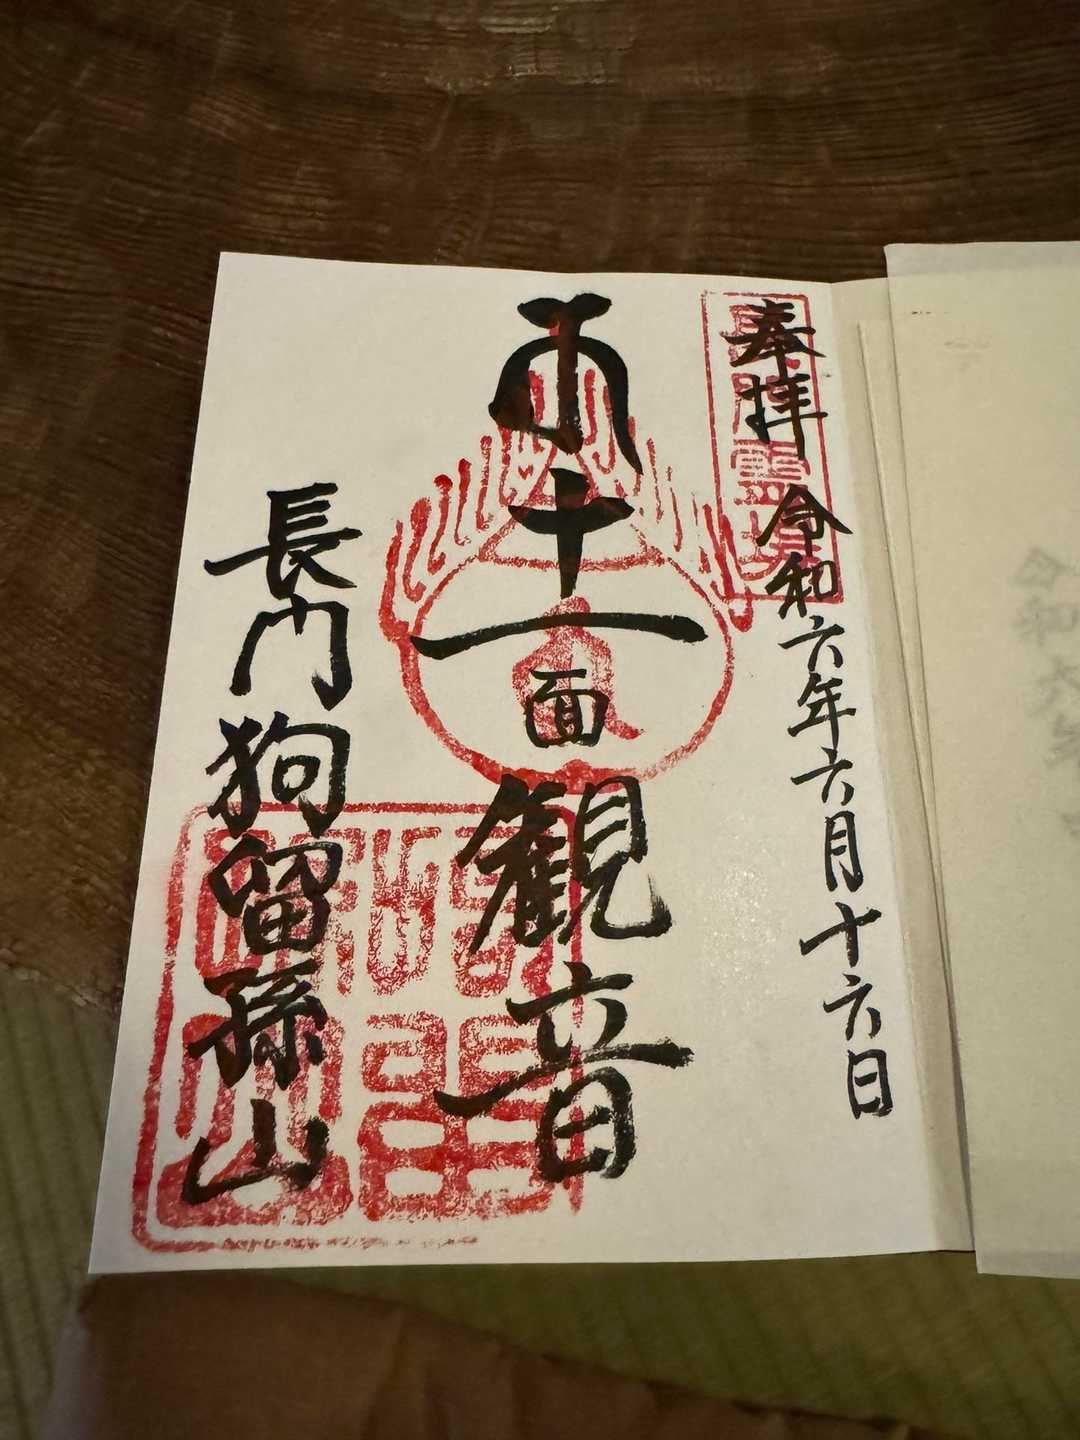 奉拝 令和六年六月十六日
十一面観音
長門狗留孫山